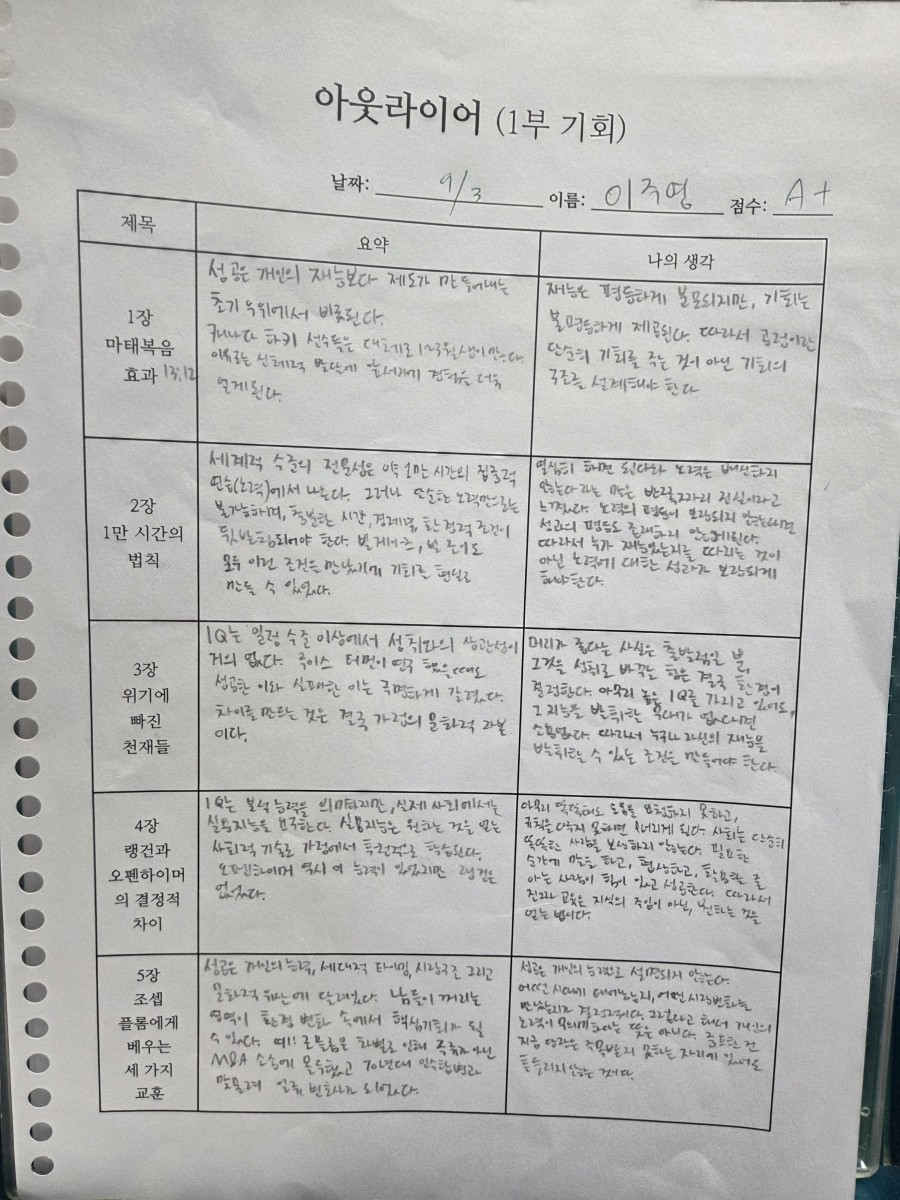 아웃라이어 (1부 기회)
날짜: 9/3 이름: 이주영 점수: A+
제목
요약
나의 생각
1장
마태복음
효과 13:12
성공은 개인의 재능보다 제도가 만들어내는
초기 우위에서 비롯된다.
캐나다 하키 선수들은 대체로 1~3월생이 많다.
이유로는 신체적 발달에 앞서기에 경험을 더욱
얻게된다.
재능은 평등하게 분포되지만, 기회는
불평등하게 제공된다. 따라서 공정이란
단순히 기회를 주는 것이 아닌 기회의
구조를 설계해야 한다
2장
1만 시간의
법칙
세계적 수준의 전문성은 약 1만 시간의 집중적
연습(노력)에서 나온다. 그러나 단순한 노력만으로는
불가능하며, 충분한 시간, 경제력, 환경적 조건이
뒷받침되어야 한다. 빌 게이츠, 빌 조이도
모두 이런 조건을 만났기에 기회를 현실로
만들 수 있었다.
열심히 하면 된다와 노력은 배신하지
않는다 라는 말은 반쪽짜리 진실이라고
느꼈다. 노력의 평등이 보장되지 않는다면
성과의 평등도 존재하지 않게된다.
따라서 누가 재능있는지를 따지는 것이
아닌 노력에 대한 성과가 보장되게
해야한다.
3장
위기에
빠진
천재들
IQ는 일정 수준 이상에서 성취와의 상관성이
거의 없다. 루이스 터먼이 연구 했을때도
성공한 이와 실패한 이는 극명하게 갈렸다.
차이를 만드는 것은 결국 가정의 문화적 자본
이다.
머리가 좋다는 사실은 출발점일 뿐,
그것을 성취로 바꾸는 힘은 결국 환경이
결정한다. 아무리 높은 IQ를 가지고 있어도,
그 지능을 발휘할 무대가 없다면
소용없다. 따라서 누구나 자신의 재능을
발휘할 수 있는 조건을 만들어야 한다
4장
랭건과
오펜하이머
의 결정적
차이
IQ는 분석 능력을 의미하지만, 실제 사회에서는
실용지능을 요구한다. 실용지능은 원하는 것을 얻는
사회적 기술로 가정에서 후천적으로 학습된다.
오펜하이머 역시 이 능력이 있었지만 랭건은
없었다.
아무리 똑똑해도 도움을 요청하지 못하고,
규칙을 다루지 못하면 밀리게 된다. 사회는 단순히
똑똑한 사람을 보상하지 않는다. 필요한
순간에 말을 하고, 협상하고, 활용할 줄
아는 사람이 힘이 있고 성공한다. 따라서
진짜 교육은 지식의 주입이 아닌, 원하는 것을
얻는 법이다.
5장
조셉
플롬에게
베우는
세 가지
교훈
성공은 개인의 능력, 세대적 타이밍, 시장구조 그리고
문화적 유산에 달려있다. 남들이 꺼리는
영역이 환경 변화 속에서 핵심기회가 될
수 있다. 예!! 플롬은 차별로 인해 주류가 아닌
M&A 소송에 몰두했고 70년대 인수합병과
맞물려 일류 변호사가 되었다.
성공은 개인의 능력으로 설명되지 않는다.
어떤 시대에 태어났는지, 어떤 시장변화를
만났는지가 결정적이다. 그렇다고 해서 개인의
노력이 무의미하다는 뜻은 아니다. 중요한 건
지금 당장은 주목받지 못하는 자리에 있어도
흔들리지 않는 것이다.